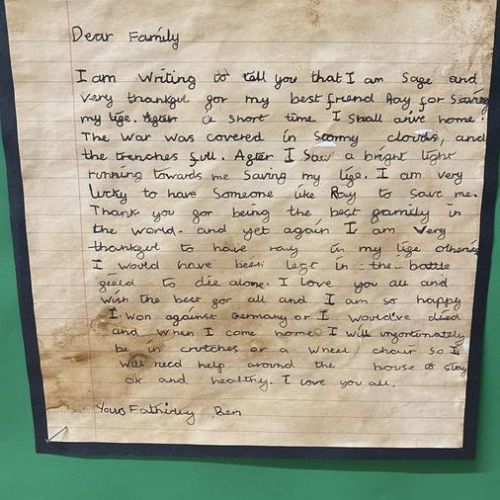 Dear Family
I am writing to tell you that I am sage and
very thankgul gor my best friend Ray for Saving
my lige. Agter a short time I shall arive home.
The war was covered in Stormy clouds, and
the trenches full. Agter I Saw a bright light
running towards me Saving my lige. I am very
lucky to have Someone like Ray to Save me.
Thank you gor being the best gamily in
the world. and yet again I am very
thankgul to have ray in my lige otherwise
I would have been legt in the battle
gield to die alone. I love you all and
wish the best gor all and I am so happy
I won against Germany or I would've died
and when I come home I will ungortunately
be in crutches or a wheel chair so I
will need help around the house to stay
ok and healthy. I love you all.
Yours Fathirley Ben